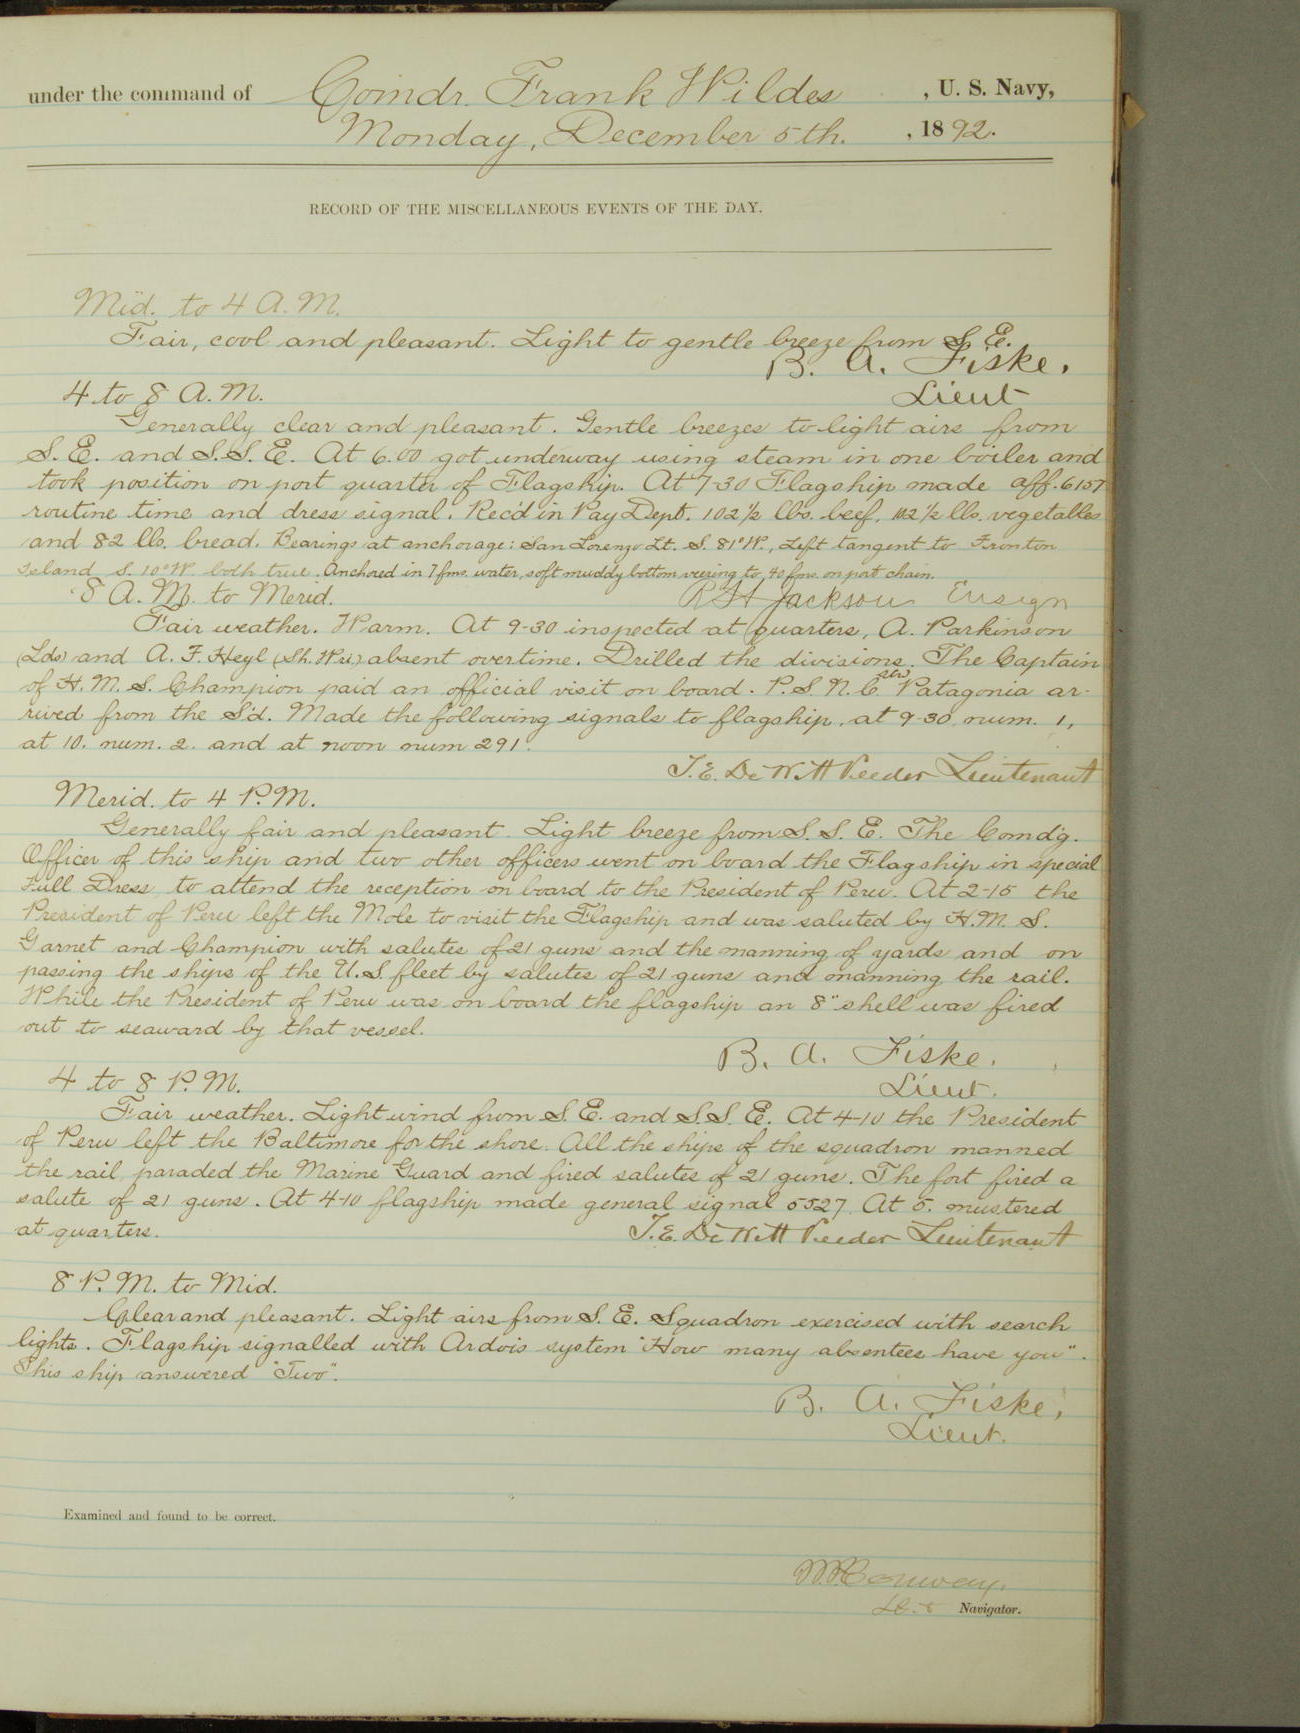 under the command of Comdr. Frank Wildes , U. S. Navy,
Monday, December 5th. , 1892.
RECORD OF THE MISCELLANEOUS EVENTS OF THE DAY.
Mid. to 4 A.M.
Fair, cool and pleasant. Light to gentle breeze from S.E.
B. A. Fiske.
4 to 8 A.M.
Lieut
Generally clear and pleasant. Gentle breezes to light airs from
S.E. and S.S.E. At 6.00 got underway using steam in one boiler and
took position on port quarter of Flagship. At 7-30 Flagship made aff. 6157
routine time and dress signal. Rec'd in Pay Dept. 102 1/2 lbs. beef, 102 1/2 lbs. vegetables
and 82 lbs. bread. Bearings at anchorage: San Lorenzo Lt. S. 81° W., Left tangent to Fronton
Island S. 10° W. both true. Anchored in 7 fms. water, soft muddy bottom veering to 40 fms. on port chain.
8 A.M. to Merid.
R H Jackson Ensign
Fair weather. Warm. At 9-30 inspected at quarters, A. Parkinson
(Lds) and A. F. Heyl (Sh. Wri.) absent overtime. Drilled the divisions. The Captain
of H.M.S. Champion paid an official visit on board. P.S.N.C. str Patagonia ar-
rived from the S'd. Made the following signals to flagship, at 9-30 num. 1,
at 10. num. 2. and at noon num 291.
T.E. DeWitt Veeder Lieutenant
Merid. to 4 P.M.
Generally fair and pleasant. Light breeze from S.S.E. The Comd'g.
Officer of this ship and two other officers went on board the Flagship in special
Full Dress to attend the reception on board to the President of Peru. At 2-15 the
President of Peru left the Mole to visit the Flagship and was saluted by H.M.S.
Garnet and Champion with salutes of 21 guns and the manning of yards and on
passing the ships of the U.S. fleet by salutes of 21 guns and manning the rail.
While the President of Peru was on board the flagship an 8" shell was fired
out to seaward by that vessel.
B. A. Fiske.
4 to 8 P.M.
Lieut.
Fair weather. Light wind from S.E. and S.S.E. At 4-10 the President
of Peru left the Baltimore for the shore. All the ships of the squadron manned
the rail, paraded the Marine Guard and fired salutes of 21 guns. The fort fired a
salute of 21 guns. At 4-10 flagship made general signal 5527. At 5. mustered
at quarters.
T.E. DeWitt Veeder Lieutenant
8 P.M. to Mid.
Clear and pleasant. Light airs from S.E. Squadron exercised with search
lights. Flagship signalled with Ardois system "How many absentees have you".
This ship answered "Two".
B. A. Fiske,
Lieut.
Examined and found to be correct.
Conway,
Navigator.